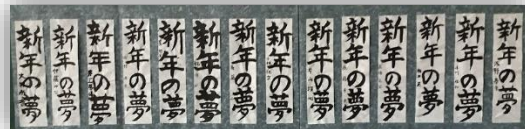 新年の夢
新年の夢
新年の夢
新年の夢
新年の夢
新年の夢
新年の夢
新年の夢
新年の夢
新年の夢
新年の夢
新年の夢
新年の夢
新年の夢